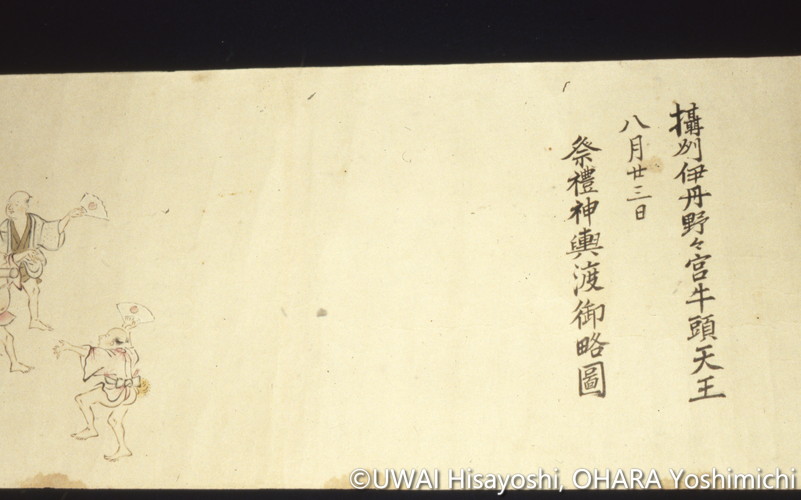 攝州伊丹野々宮牛頭天王
八月廿三日
祭禮神輿渡御略圖
©UWAI Hisayoshi, OHARA Yoshimichi